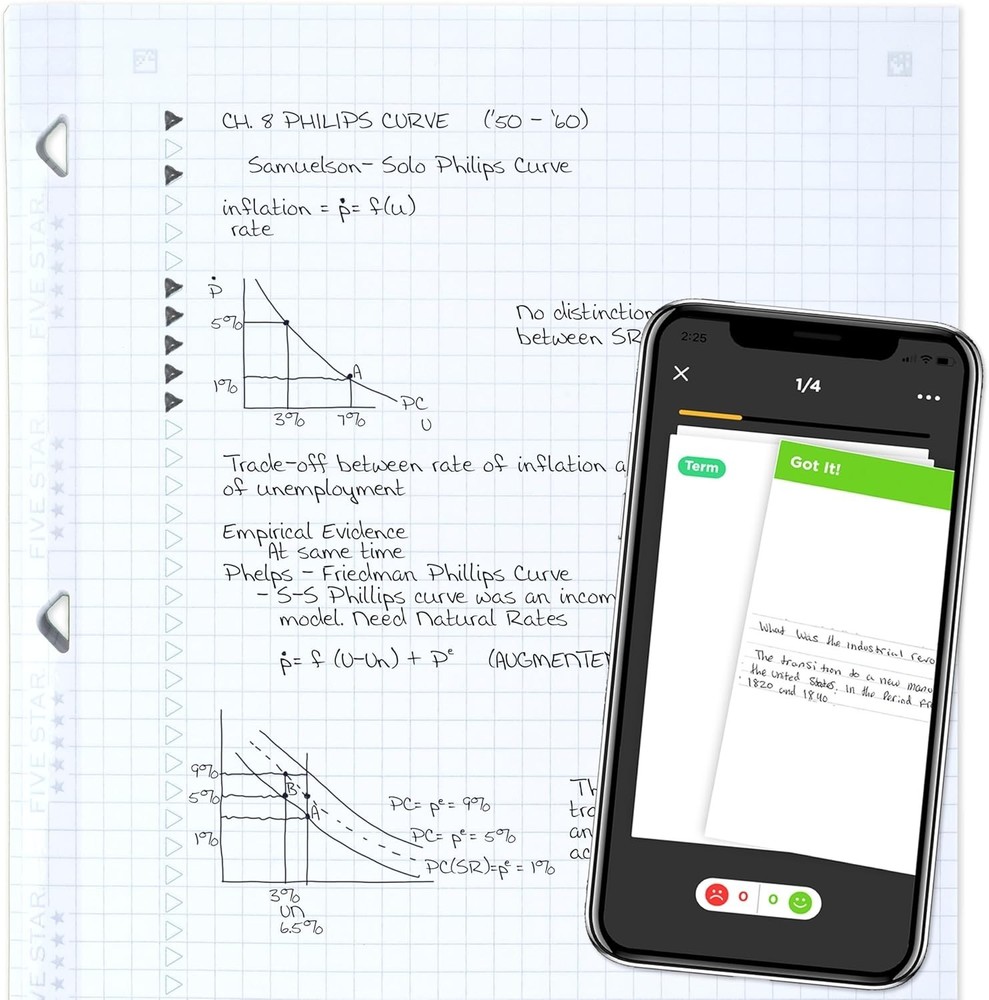 CH. 8 PHILIPS CURVE ('50 - '60)
Samuelson- Solo Philips Curve
inflation = ṗ= f(u)
rate
ṗ
5%
1%
A
3% 7%
PC
U
No distinction
between SR
Trade-off between rate of inflation a
of unemployment
Empirical Evidence
At same time
Phelps - Friedman Phillips Curve
- S-S Phillips curve was an incom
model. Need Natural Rates
ṗ= f (U-Un) + Pᵉ (AUGMENTE
9%
5%
1%
B
A
PC= pᵉ= 9%
PC= pᵉ= 5%
PC(SR)=pᵉ= 1%
3%
un
6.5%
Th
tra
an
ac
FIVE STAR
FIVE STAR
FIVE STAR
VE STAR
2:25
1/4
Term
Got It!
What was the industrial revo
The transition to a new manu
the United States. In the Period fr
1820 and 1840
0 0